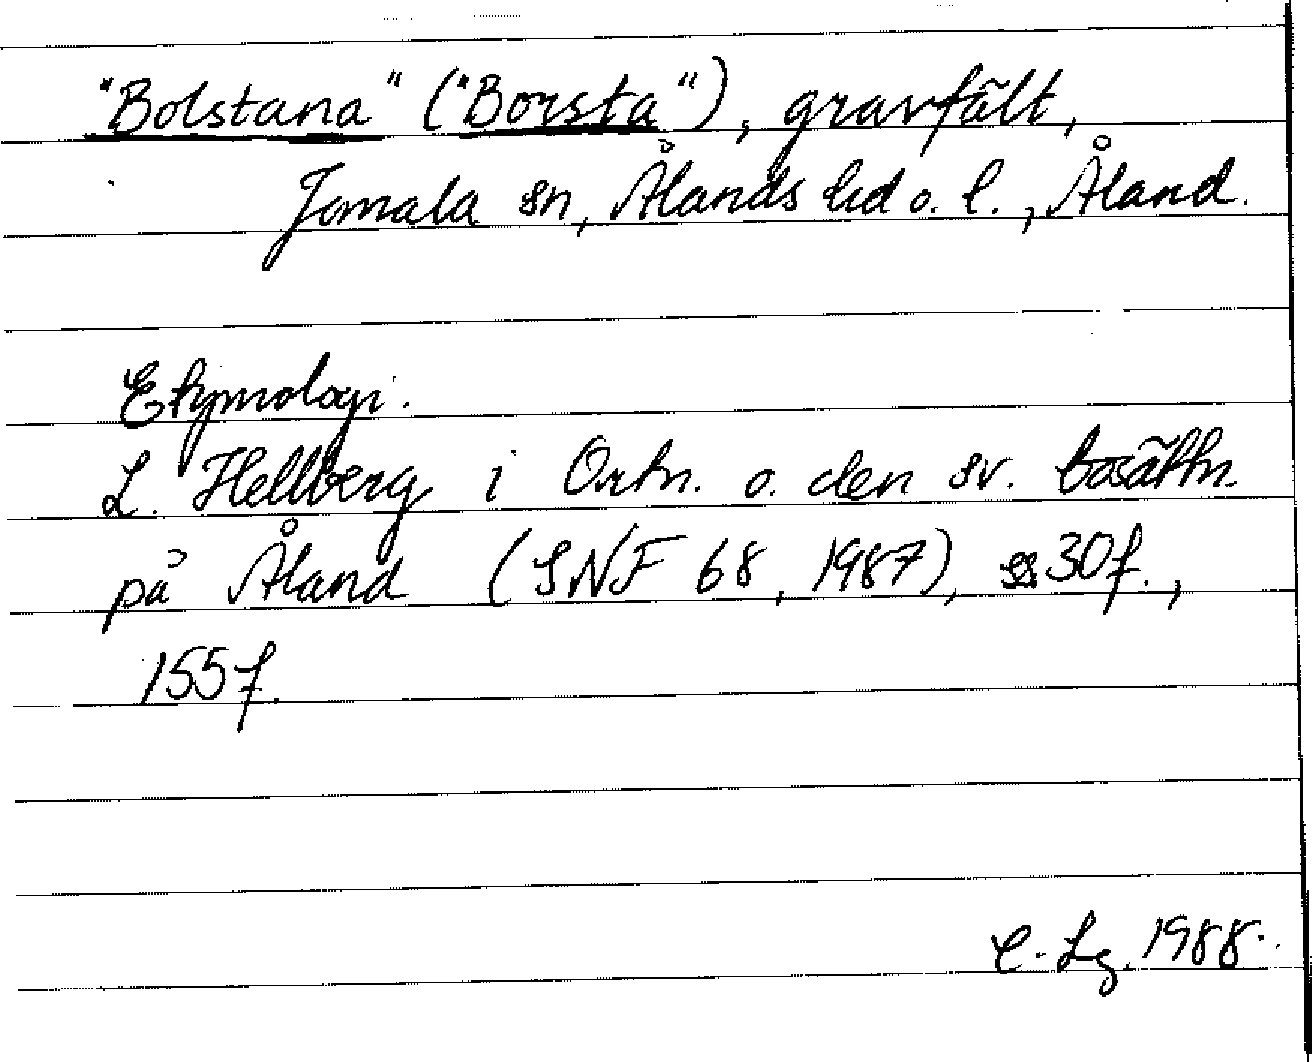 "Bolstana" ("Borsta"), gravfält,
Jomala sn, Ålands hd o. l., Åland.
Etymologi.
L. Hellberg i Ortn. o. den sv. bosättn.
på Åland (SNF 68, 1987), ss 30f.,
155f.
C. Lg. 1988.